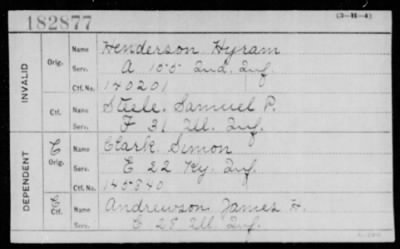 182877
(3-H-4)
INVALID
Orig.
Name Henderson Hyram
Serv. A 100 Ind. Inf.
Ctf. No. 140201
Ctf.
Name Steele, Samuel P.
Serv. F 31 Ill. Inf.
DEPENDENT
C Orig.
Name Clark, Simon
Serv. E 22 Ky. Inf.
Ctf. No. 145840
C Ctf.
Name Andrewson James H.
Serv. C 28 Ill. Inf.